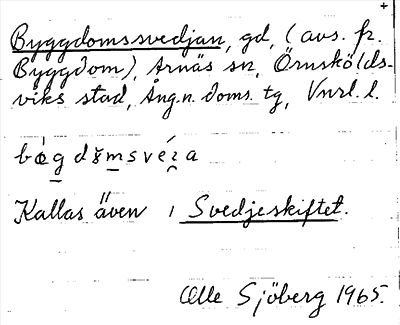 Byggdomssvedjan, gd, (avs. fr.
Byggdom), Arnäs sn, Örnskölds-
viks stad, Ång.n. doms. tg, Vnrl. l.
Kallas även Svedjeskiftet.
Olle Sjöberg 1965.